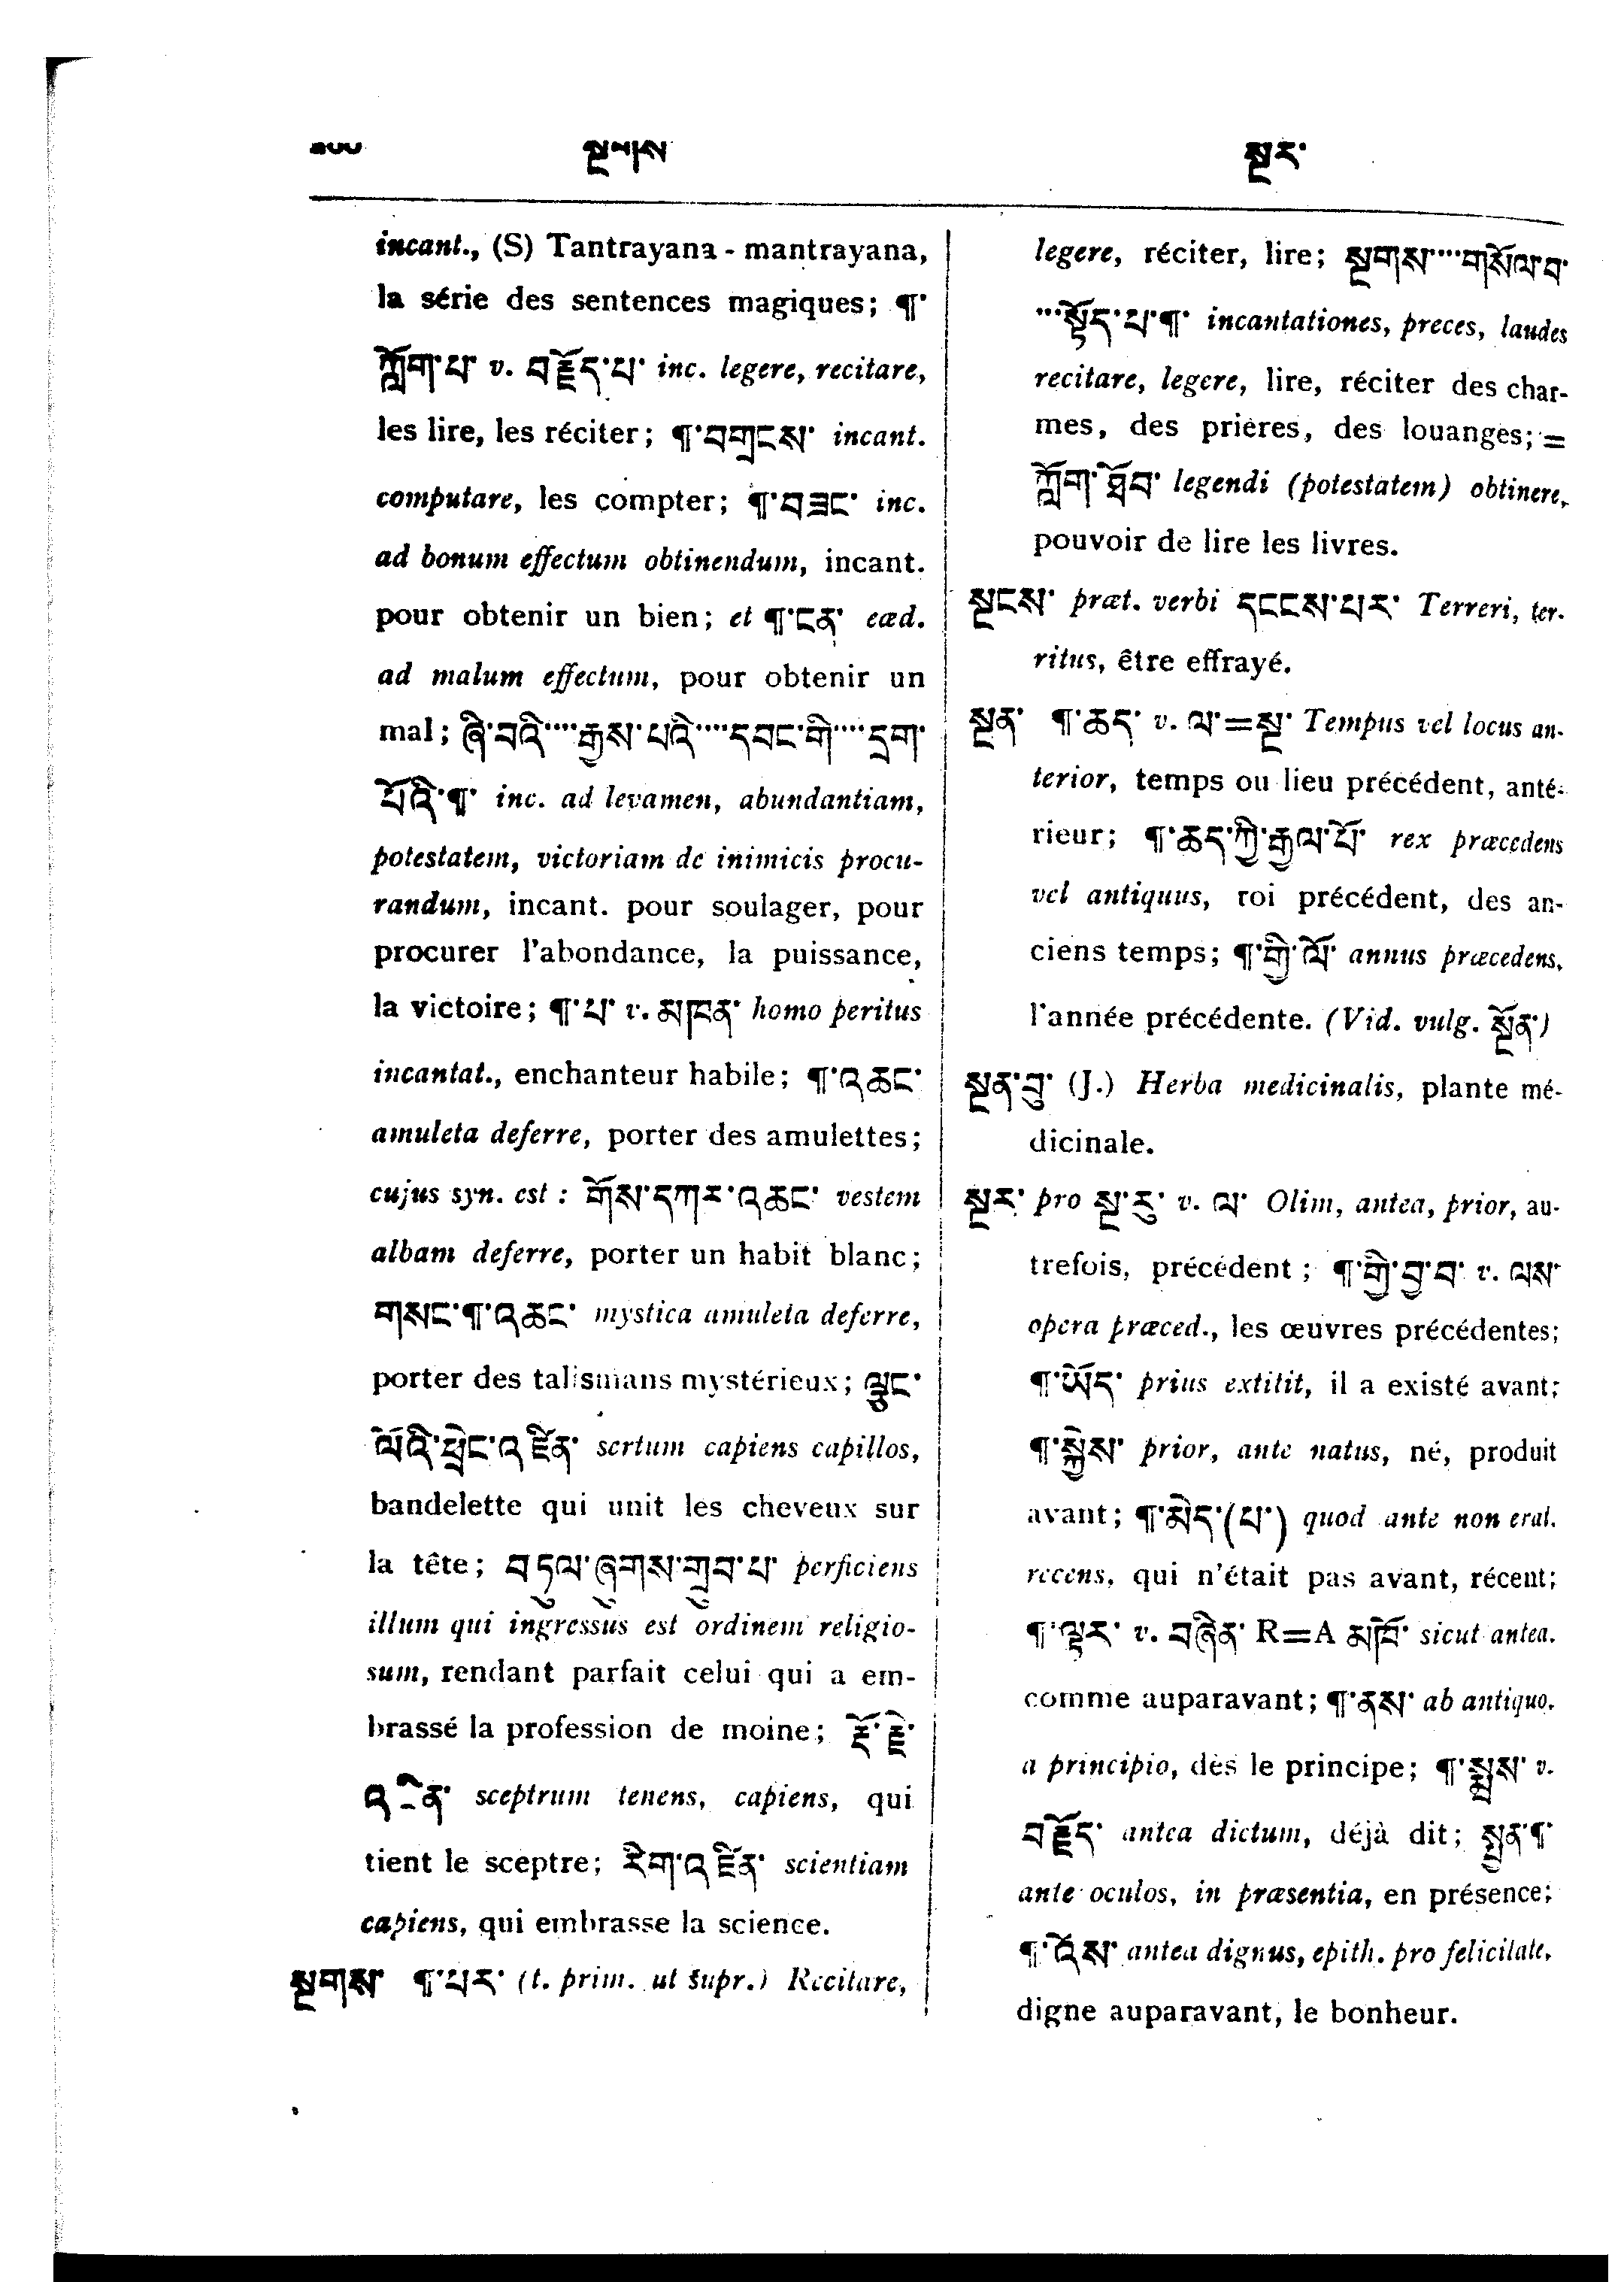 སྔགས
སྔར་
incant., (S) Tantrayana - mantrayana,
la série des sentences magiques; ¶་
ཀློག་པ་ v. བརྗོད་པ་ inc. legere, recitare,
les lire, les réciter; ¶་བགྲངས་ incant.
computare, les compter; ¶་བཟང་ inc.
ad bonum effectum obtinendum, incant.
pour obtenir un bien; et ¶་ངན་ eæd.
ad malum effectum, pour obtenir un
mal; ཞི་བའི་····རྒྱས་པའི་····དབང་གི་····དྲག་
པོའི་¶་ inc. ad levamen, abundantiam,
potestatem, victoriam de inimicis procu-
randum, incant. pour soulager, pour
procurer l'abondance, la puissance,
la victoire; ¶་པ་ v. མཁན་ homo peritus
incantat., enchanteur habile; ¶་འཆང་
amuleta deferre, porter des amulettes;
cujus syn. est : གོས་དཀར་འཆང་ vestem
albam deferre, porter un habit blanc;
གསང་¶་འཆང་ mystica amuleta deferre,
porter des talismans mystérieux; ལྕང་
ལོའི་ཕྲེང་འཛིན་ sertum capiens capillos,
bandelette qui unit les cheveux sur
la tête; བཏུལ་ཞུགས་གྲུབ་པ་ perficiens
illum qui ingressus est ordinem religio-
sum, rendant parfait celui qui a em-
brassé la profession de moine; རྡོ་རྗེ་
འཛིན་ sceptrum tenens, capiens, qui
tient le sceptre; རིག་འཛིན་ scientiam
capiens, qui embrasse la science.
སྔགས་ ¶་པར་ (t. prim. ut supr.) Recitare,
legere, réciter, lire; སྔགས་····གསོལ་བ་
···སྟོད་པ་¶་ incantationes, preces, laudes
recitare, legere, lire, réciter des char-
mes, des prières, des louanges; =
ཀློག་ཐོབ་ legendi (potestatem) obtinere,
pouvoir de lire les livres.
སྔངས་ præt. verbi དངངས་པར་ Terreri, ter-
ritus, être effrayé.
སྔན་ ¶་ཆད་ v. ལ་=སྔ་ Tempus vel locus an-
terior, temps ou lieu précédent, anté-
rieur; ¶་ཆད་ཀྱི་རྒྱལ་པོ་ rex præcedens
vel antiquus, roi précédent, des an-
ciens temps; ¶་གྱི་ལོ་ annus præcedens,
l'année précédente. (Vid. vulg. སྔོན་)
སྔན་བུ་ (J.) Herba medicinalis, plante mé-
dicinale.
སྔར་ pro སྔ་རུ་ v. ལ་ Olim, antea, prior, au-
trefois, précédent; ¶་གྱི་བྱ་བ་ v. ལས་
opera præced., les œuvres précédentes;
¶་ཡོད་ prius extitit, il a existé avant;
¶་སྐྱེས་ prior, ante natus, né, produit
avant; ¶་མེད་(པ་) quod ante non erat,
recens, qui n'était pas avant, récent;
¶་ལྟར་ v. བཞིན་ R=A མཁོ་ sicut antea,
comme auparavant; ¶་ནས་ ab antiquo,
a principio, dès le principe; ¶་སྨྲས་ v.
བརྗོད་ antea dictum, déjà dit; སྤྱན་¶་
ante oculos, in præsentia, en présence;
¶་འོས་ antea dignus, epith. pro felicitate,
digne auparavant, le bonheur.